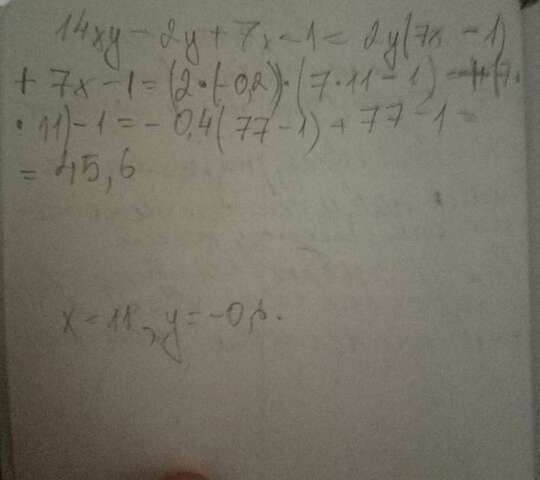 14xy - 2y + 7x - 1 = 2y(7x - 1)
+ 7x - 1 = (2·(-0,2))·(7·11 - 1) + (7·
· 11) - 1 = - 0,4(77 - 1) + 77 - 1 =
= 45,6
x = 11, y = -0,